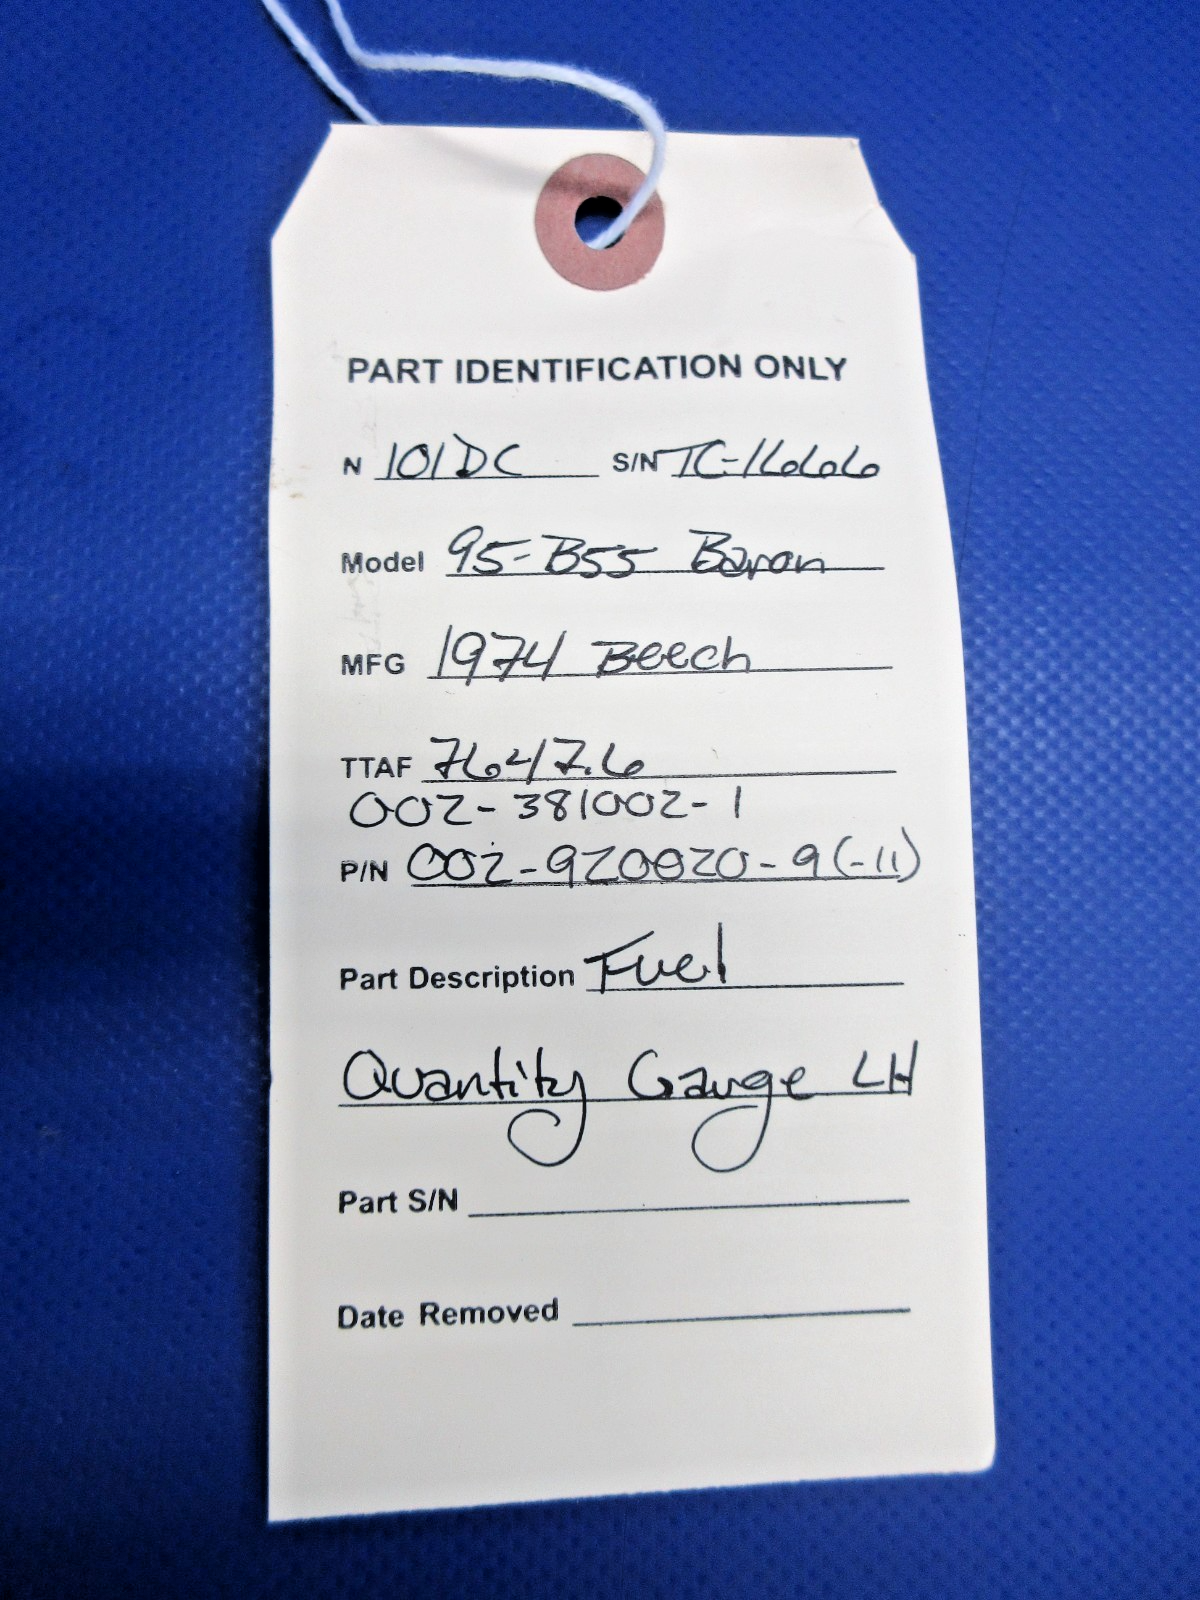 PART IDENTIFICATION ONLY
N 101DC S/N TC-1666
Model 95-B55 Baron
MFG 1974 Beech
TTAF 7647.6
002-381002-1
P/N 002-920020-9(-11)
Part Description Fuel
Quantity Gauge LH
Part S/N
Date Removed